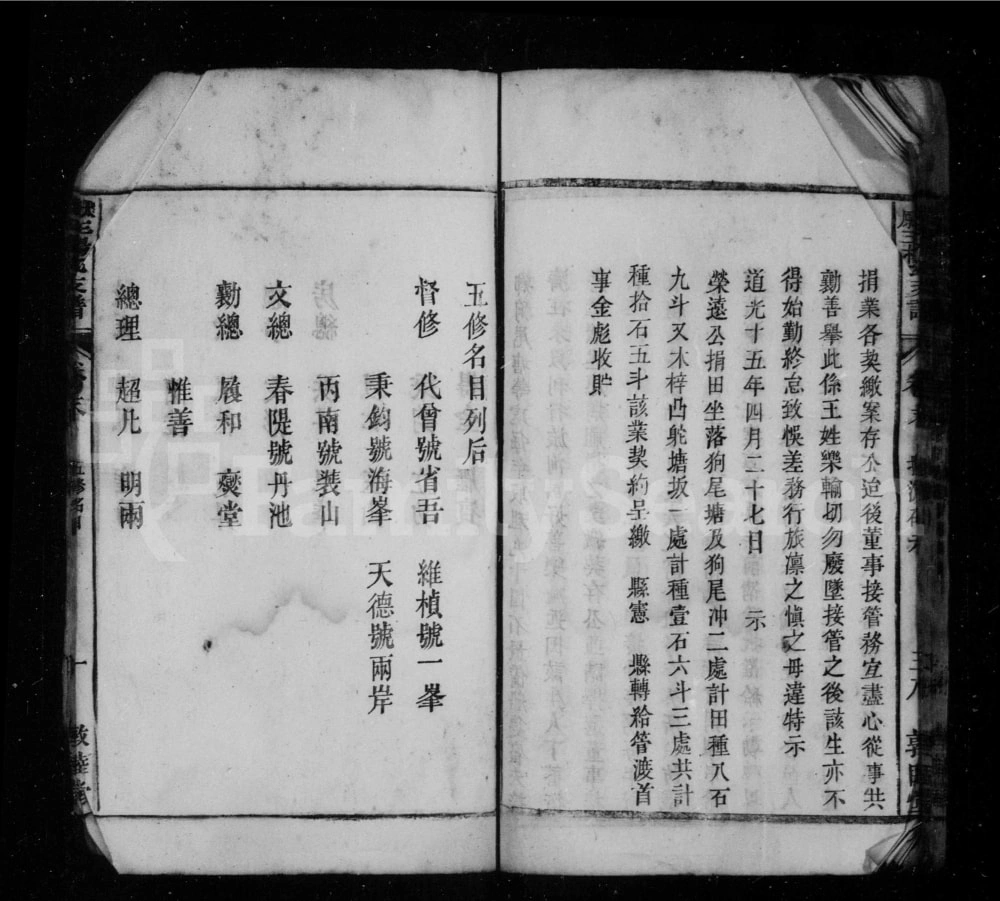 捐業各契繳案存公迨後董事接管務宜盡心從事共
勷善舉此係王姓樂輸切勿廢墜接管之後該生亦不
得始勤終怠致悞差務行旅凜之慎之毋違特示
道光十五年四月二十七日 示
榮遠公捐田坐落狗尾塘及狗尾冲二處計田種八石
九斗又木梓凸鴕塘坂一處計種壹石六斗三處共計
種拾石五斗該業契約呈繳 縣憲 縣轉給管渡首
事金彪收貯
五修名目列后
督修 代曾號省吾 維楨號一峯
秉鈞號海峯 天德號兩岸
丙南號裝山
文總 春隄號丹池
勷總 展和 燮堂
惟善
總理 超凡 明兩
五修名目
一
敦睦堂